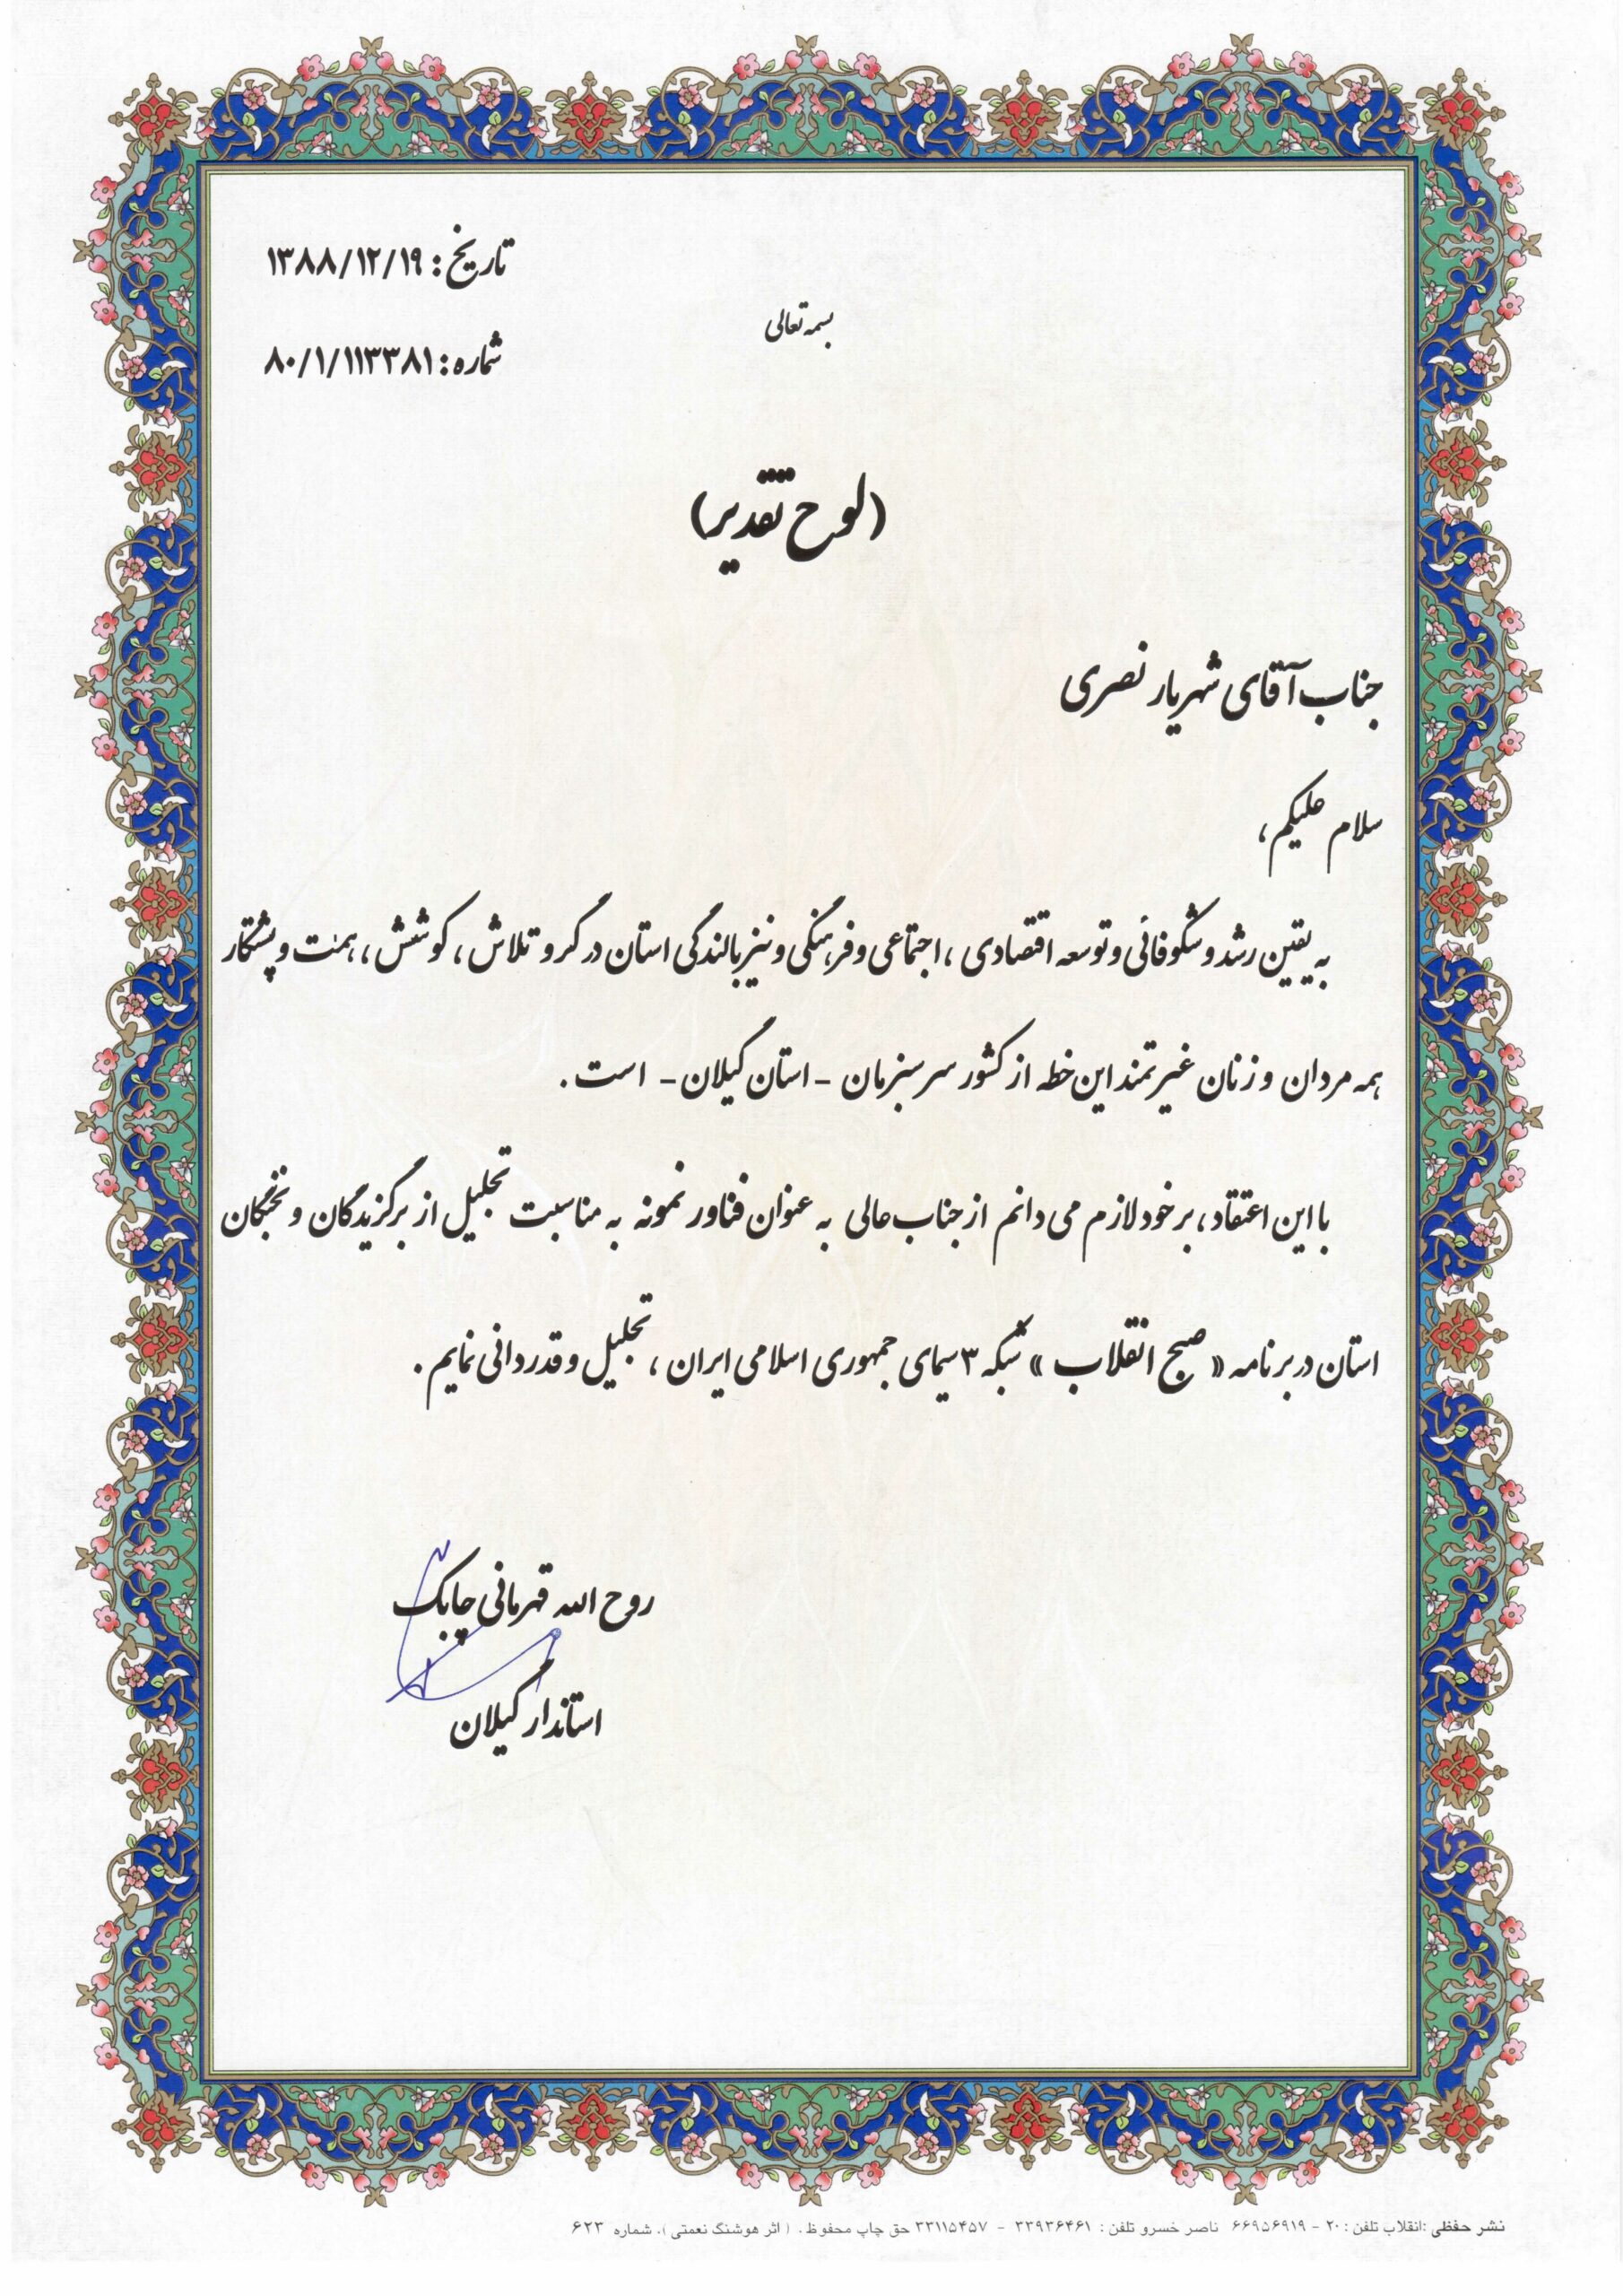 تاریخ : ۱۳۸۸/۱۲/۱۹
بسمه تعالی
شماره : ۸۰/۱/۱۱۳۳۸۱
(لوح تقدیر)
جناب آقای شهریار نصری
سلام علیکم ،
به یقین رشد و شکوفائی و توسعه اقتصادی ، اجتماعی و فرهنگی و نیز بالندگی استان در گرو تلاش ، کوشش ، همت و پشتکار
همه مردان و زنان غیرتمند این خطه از کشور سرسبزمان - استان گیلان - است .
با این اعتقاد ، بر خود لازم می دانم از جناب عالی به عنوان فناور نمونه به مناسبت تجلیل از برگزیدگان و نخبگان
استان در برنامه « صبح انقلاب » شبکه ۳ سیمای جمهوری اسلامی ایران ، تجلیل و قدردانی نمایم .
روح الله قهرمانی چابک
استاندار گیلان
نشر حفظی :انقلاب تلفن : ۲۰ - ۶۶۹۵۶۹۱۹ ناصر خسرو تلفن : ۳۳۹۳۶۴۶۱ - ۳۳۱۱۵۴۵۷ حق چاپ محفوظ . ( اثر هوشنگ نعمتی ). شماره ۶۲۳